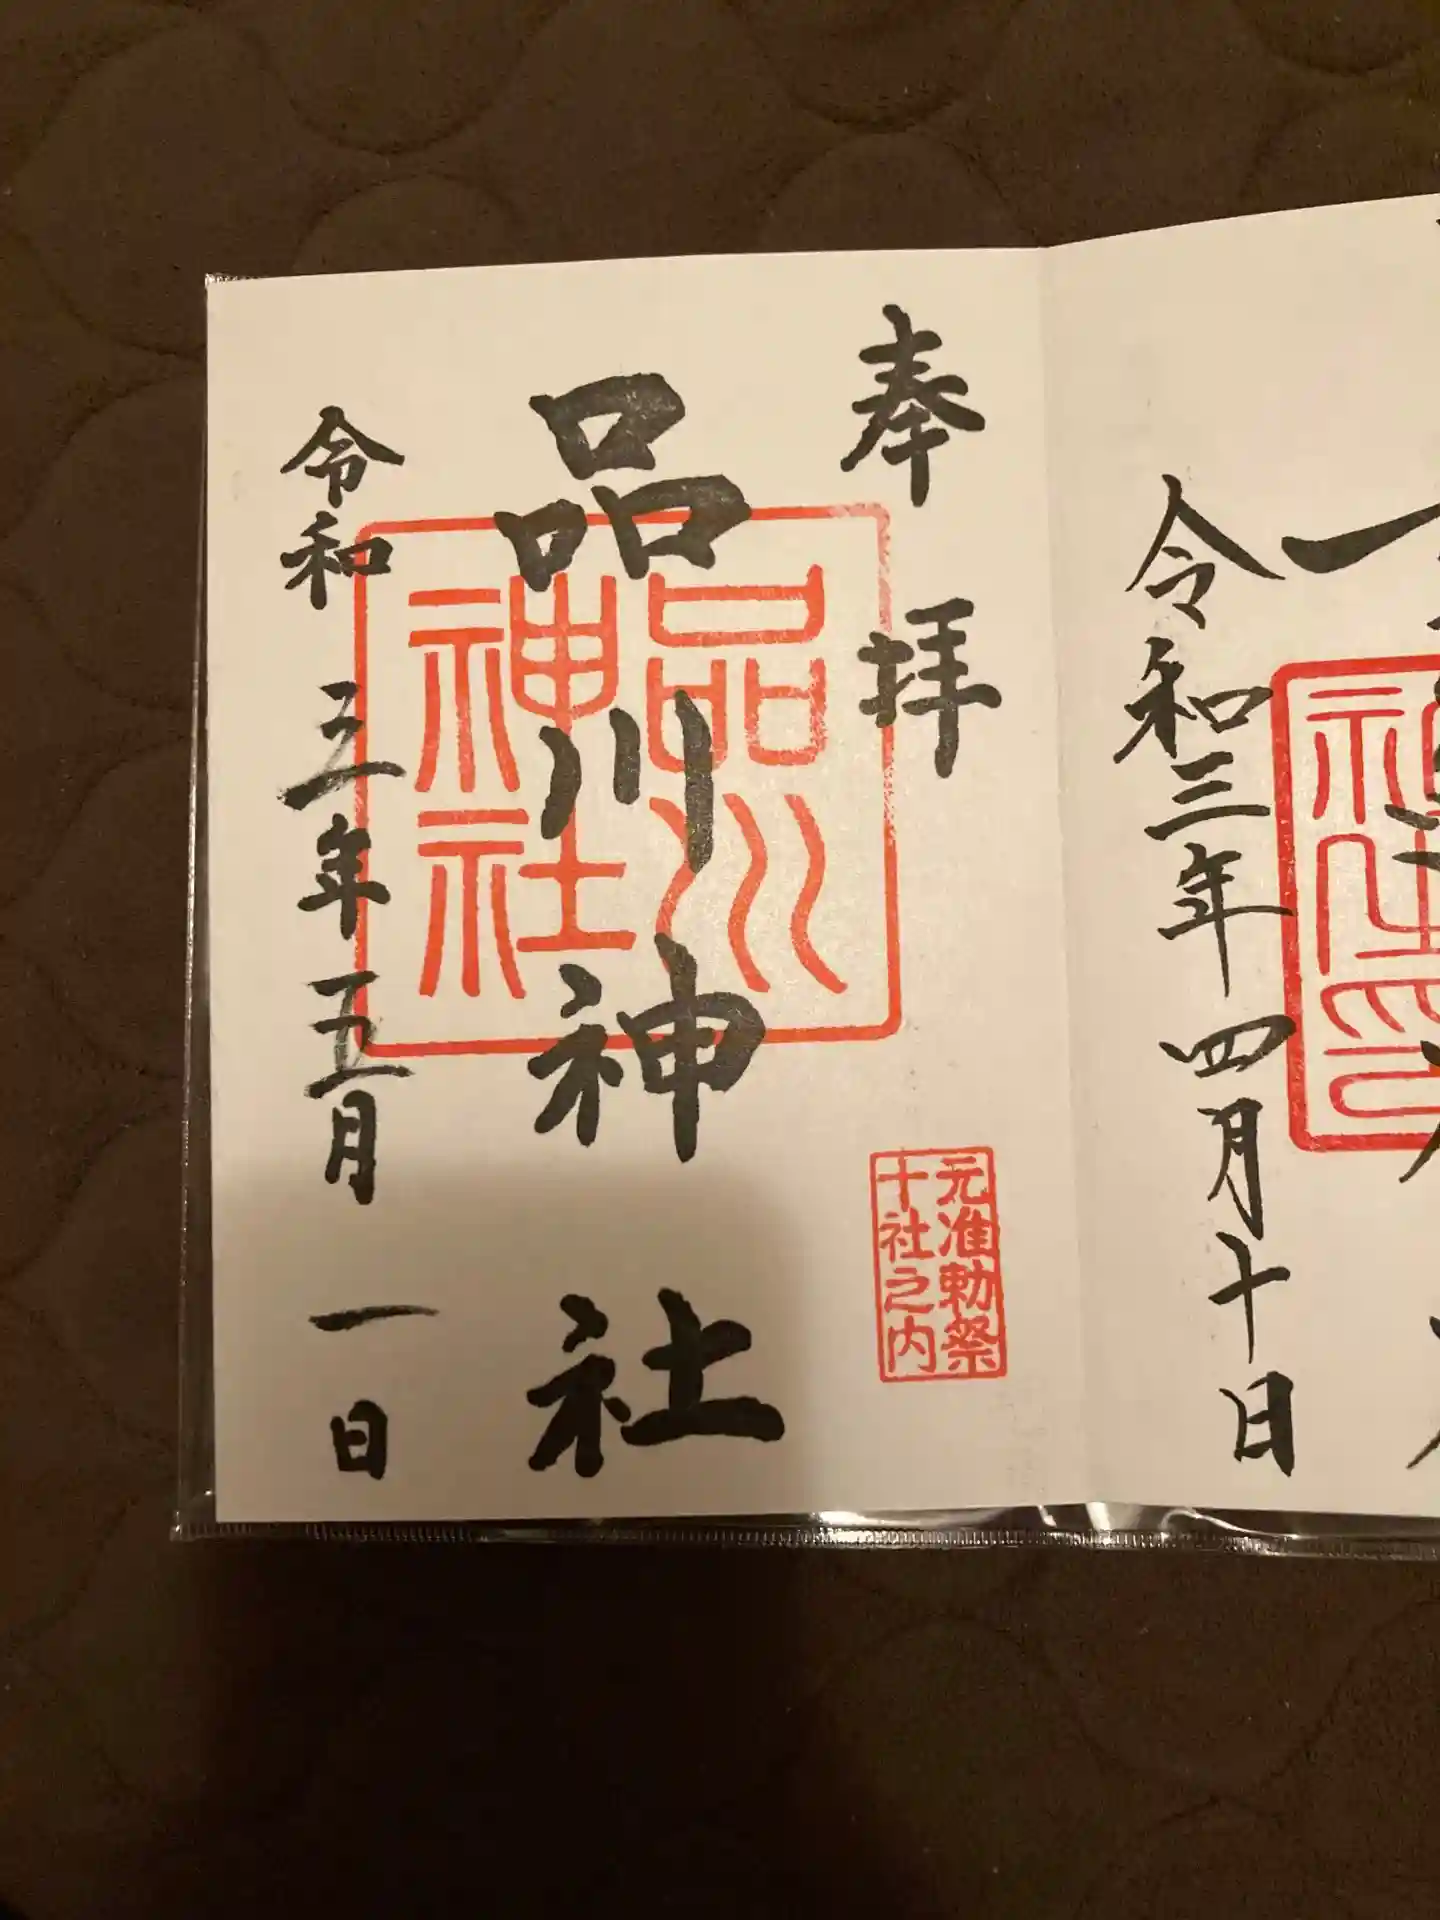 令和三年四月十日
奉拝
元准勅祭
十社之内
品川
神社
品川神社
令和三年五月一日